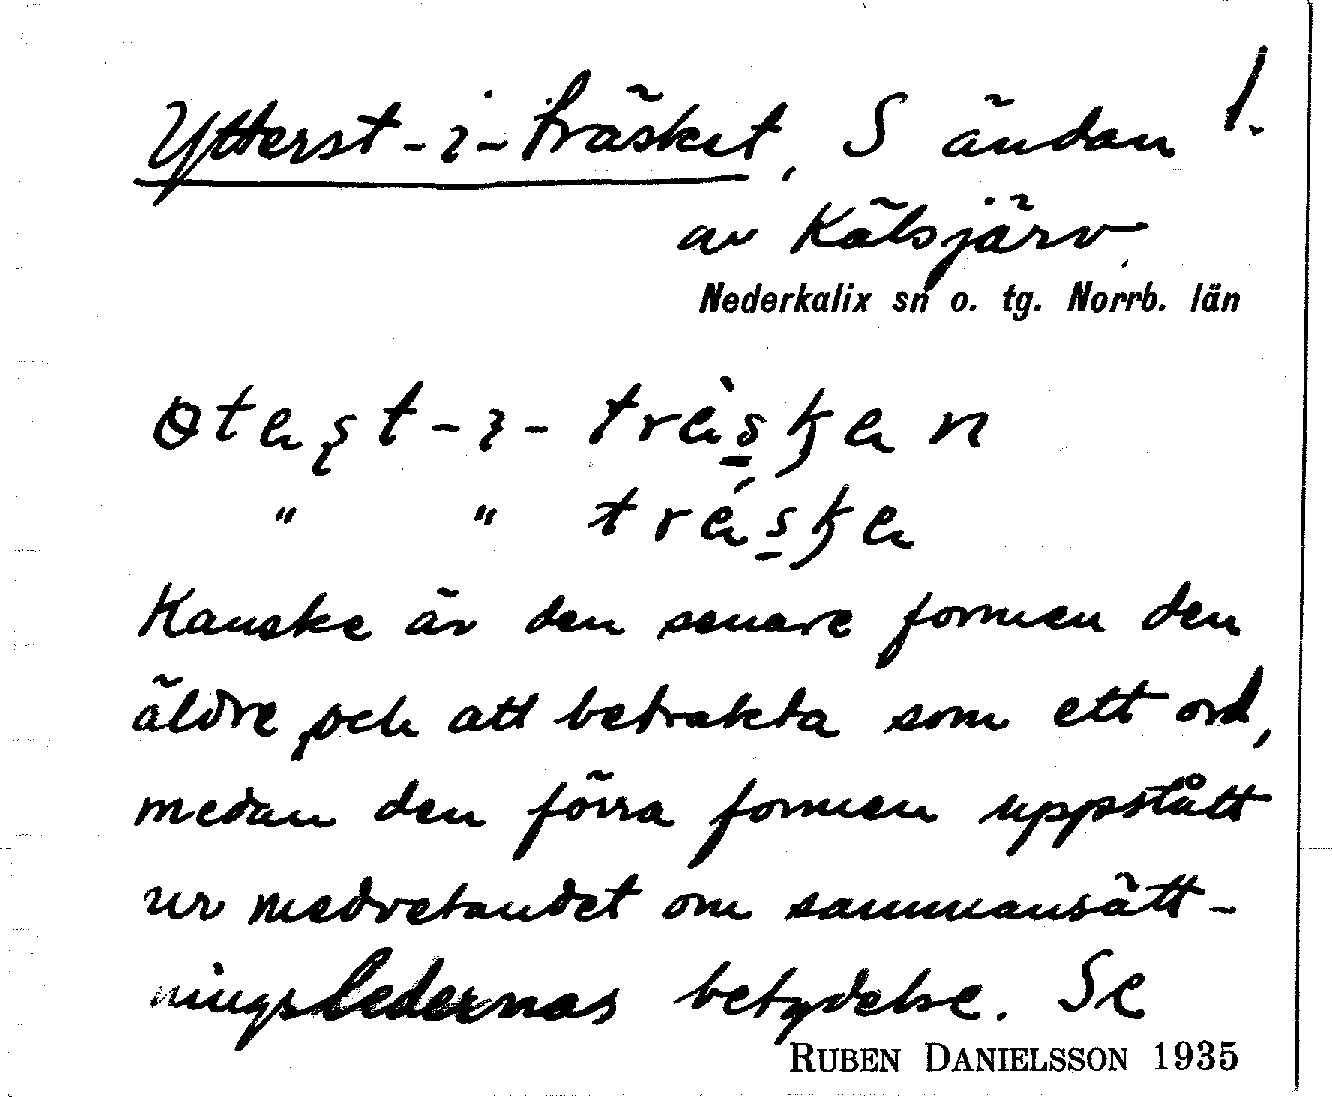 Ytterst-i-träsket, S ändan 1.
av Kälsjärv.
Nederkalix sn o. tg. Norrb. län
" "
Kanske är den senare formen den
äldre och att betrakta som ett ord,
medan den förra formen uppstått
ur medvetandet om sammansätt-
ningsledernas betydelse. Se
RUBEN DANIELSSON 1935